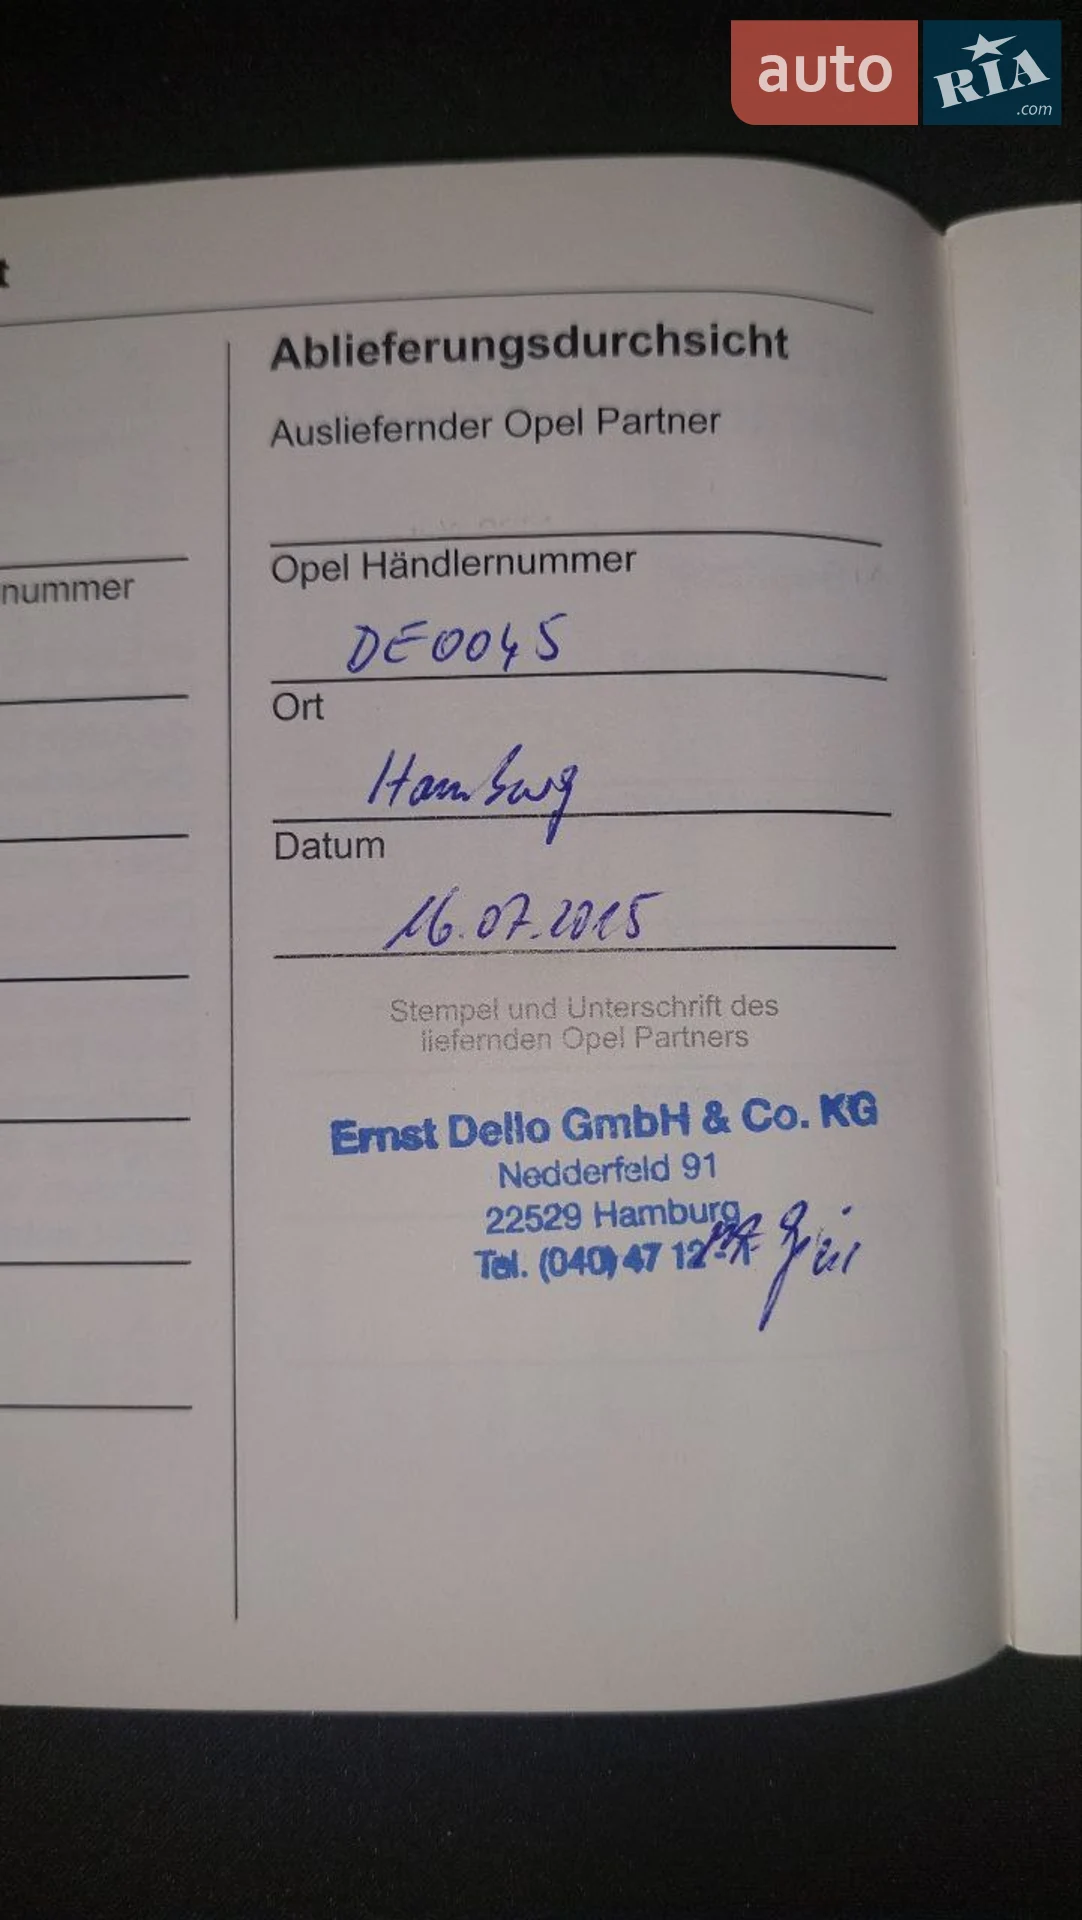 auto RIA .com
t
nummer
Ablieferungsdurchsicht
Ausliefernder Opel Partner
Opel Händlernummer
DE0045
Ort
Hamburg
Datum
16.07.2015
Stempel und Unterschrift des
liefernden Opel Partners
Ernst Dello GmbH & Co. KG
Nedderfeld 91
22529 Hamburg
Tel. (040) 47 12